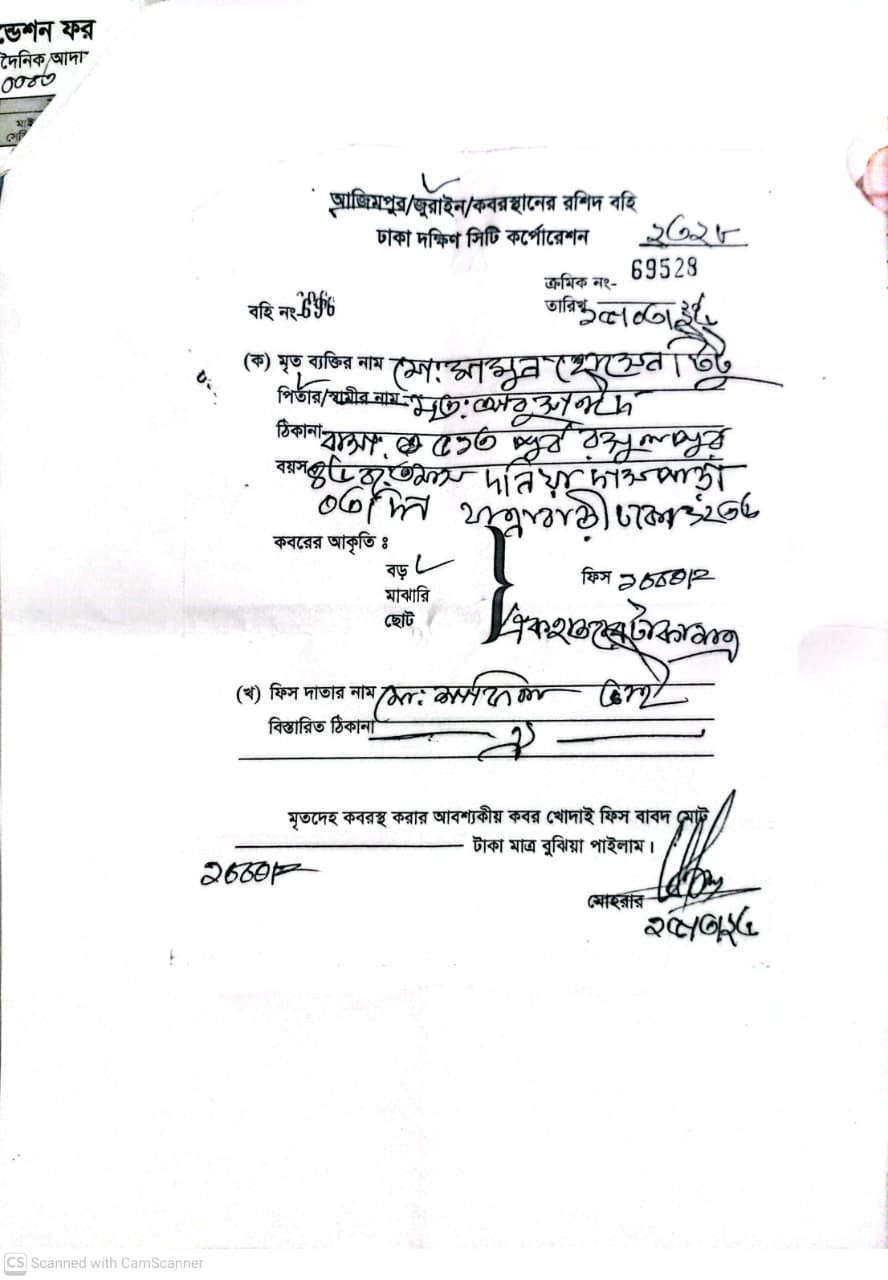 ন্ডেশন ফর
দৈনিক আদা
আজিমপুর/জুরাইন/কবরস্থানের রশিদ বহি
ঢাকা দক্ষিণ সিটি কর্পোরেশন
২৩২৮
ক্রমিক নং- 69528
বহি নং-696
তারিখ
(ক) মৃত ব্যক্তির নাম মো: মামুন হোসেন টিটু
পিতার/স্বামীর নাম- মৃত: আবু সাঈদ
ঠিকানা বাসা: ৫১৩ পূর্ব রসুলপুর
বয়স দনিয়া দাসপাড়া
০৩ দিন যাত্রাবাড়ী ঢাকা ১২৩৬
কবরের আকৃতি ঃ
বড়
মাঝারি
ছোট
ফিস ১০০০/=
এক হাজার টাকা মাত্র
(খ) ফিস দাতার নাম মো:
বিস্তারিত ঠিকানা ঐ
মৃতদেহ কবরস্থ করার আবশ্যকীয় কবর খোদাই ফিস বাবদ মোট
টাকা মাত্র বুঝিয়া পাইলাম।
১০০০/=
মোহরার
CS Scanned with CamScanner